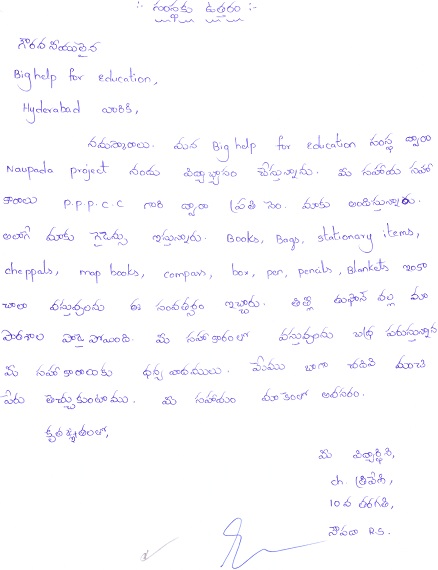 :- సంస్థకు ఉత్తరం :-
గౌరవనీయులైన
Big help for education,
Hyderabad వారికి,
నమస్కారాలు. మన Big help for education సంస్థ ద్వారా
Naupada project నందు విద్యాభ్యాసం చేస్తున్నాను. మీ సహాయ సహా
కారాలు P.P.P.C.C గారి ద్వారా ప్రతి సం. మాకు అందిస్తున్నారు.
అలాగే మాకు గైడెన్సు ఇస్తున్నారు. Books, Bags, stationary items,
cheppals, map books, compass, box, pen, pencils, Blankets ఇంకా
చాలా వస్తువులను ఈ సంవత్సరం ఇచ్చారు. తిత్లీ తుఫాన్ వల్ల మా
పాఠశాల పాడై పోయింది. మీ సహకారంలో వస్తువులను భద్ర పరుస్తున్నాను
మీ సహాకారాలకు ధన్యవాదములు. మేము బాగా చదివి మంచి
పేరు తెచ్చుకుంటాము. మీ సహాయం మాకెంతో అవసరం.
కృతజ్ఞతలతో,
మీ విద్యార్థిని,
ch. త్రివేణి,
10వ తరగతి,
నౌపడా R.S.